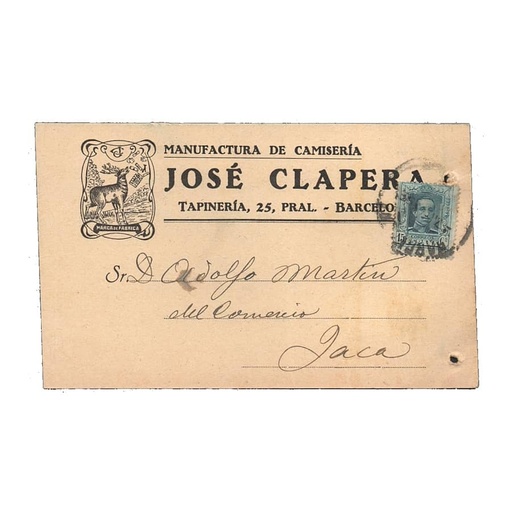 MANUFACTURA DE CAMISERÍA
JOSÉ CLAPERA
TAPINERÍA, 25, PRAL. - BARCELO
MARCA DE FÁBRICA
Sr. D. Adolfo Martin
del Comercio
Jaca